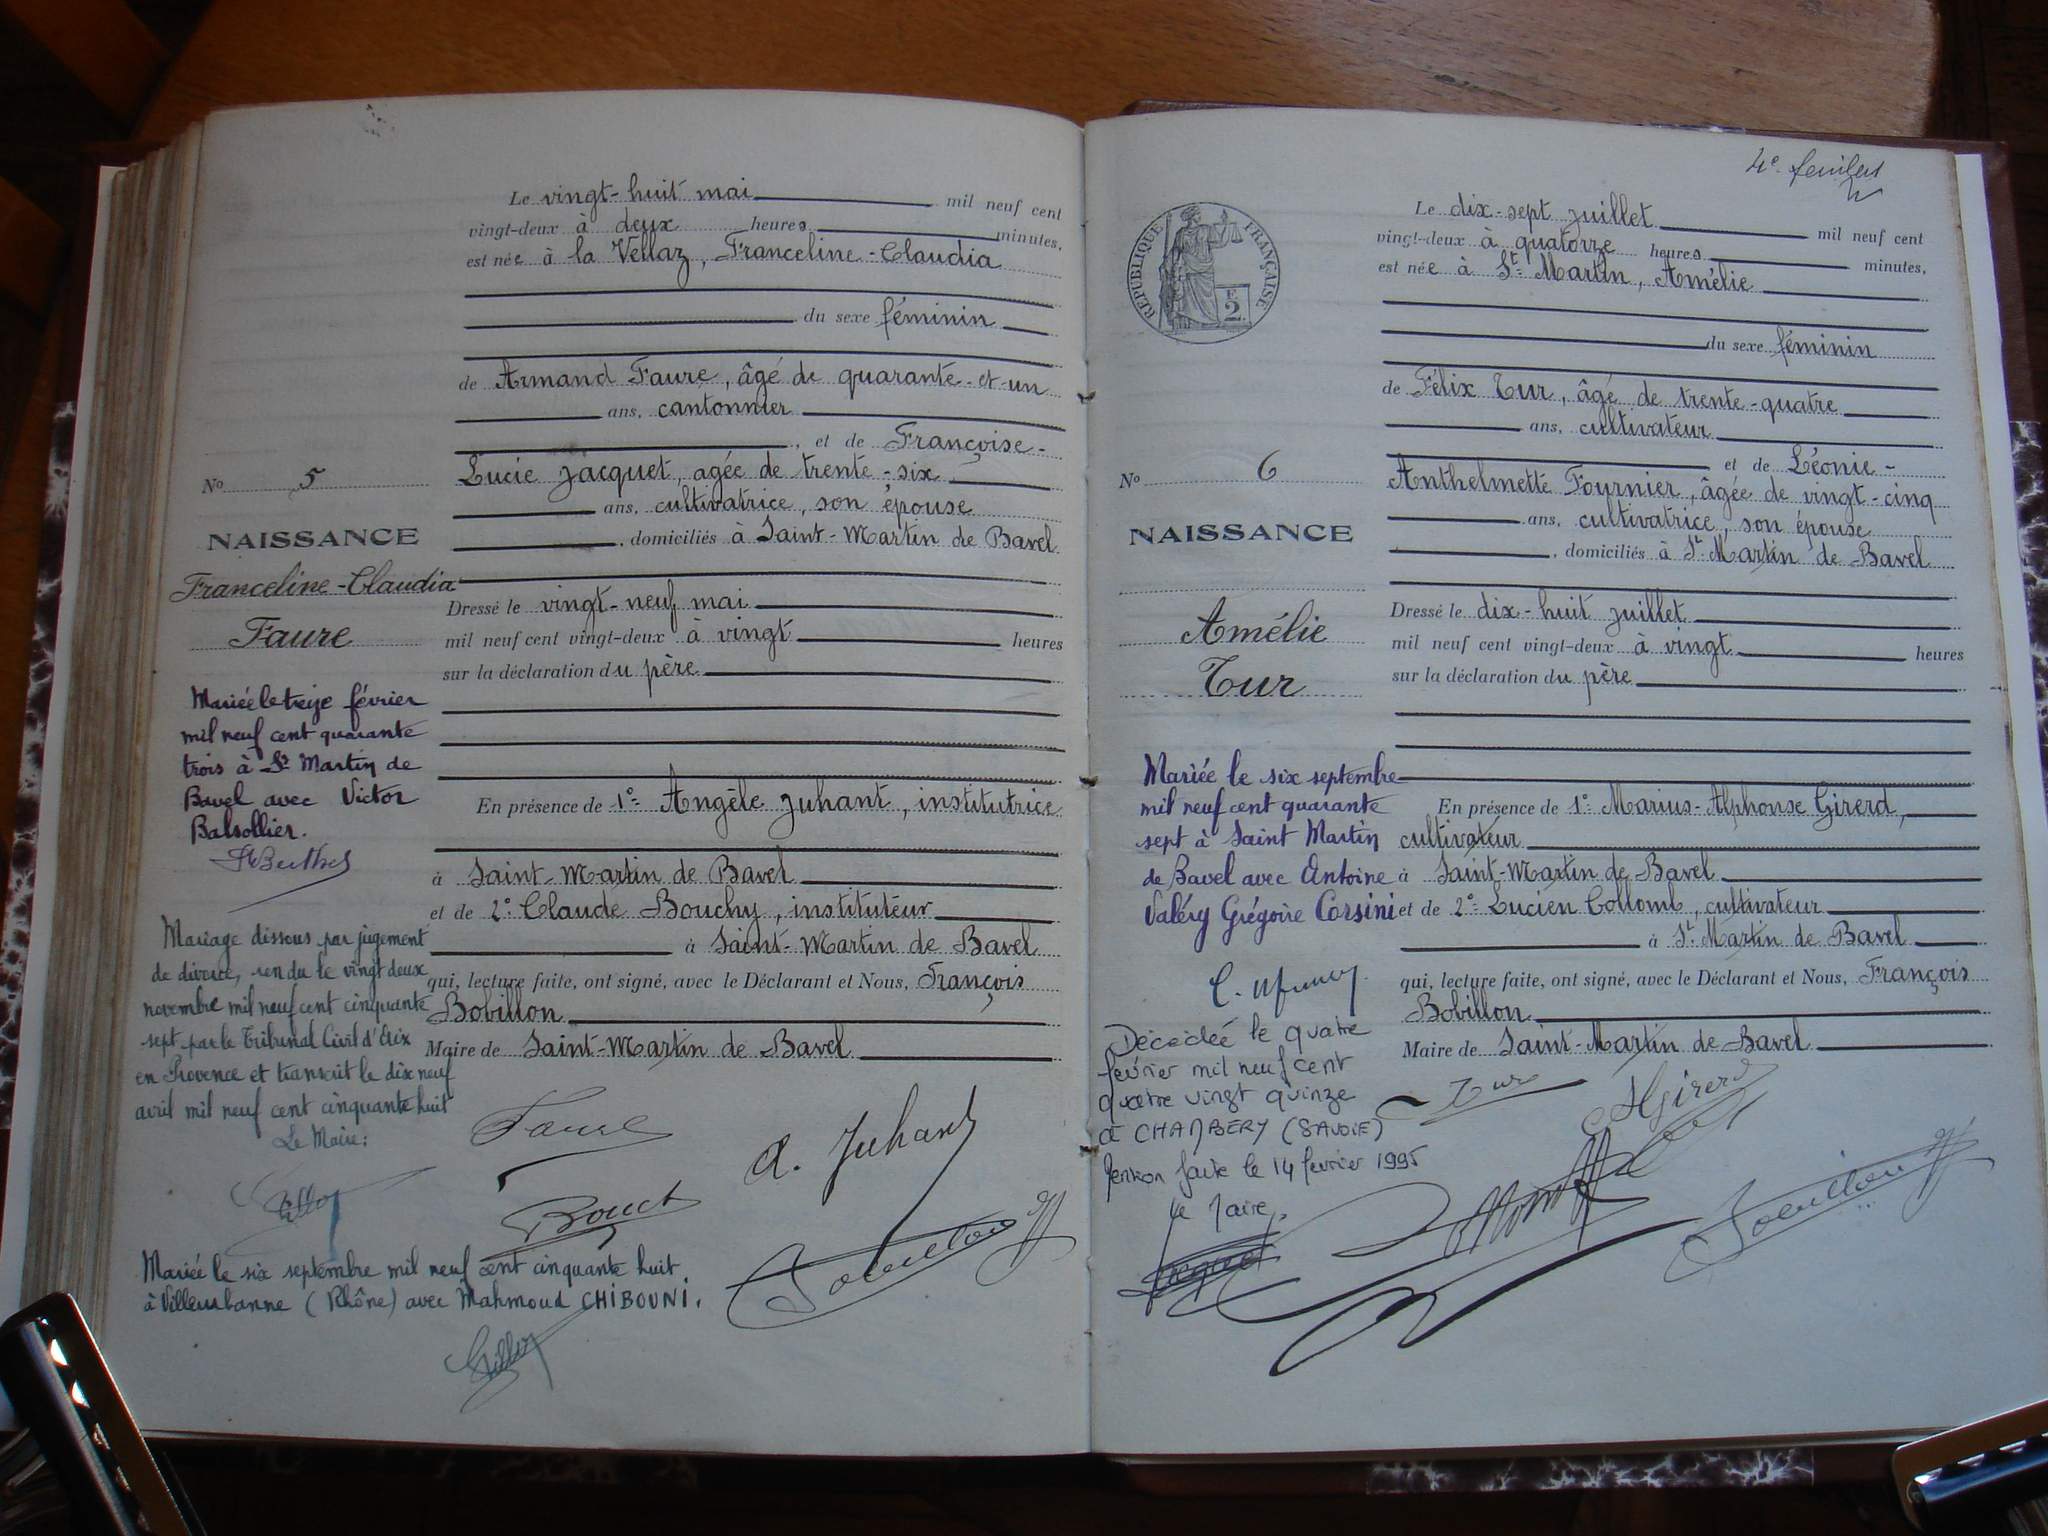 Le vingt-huit mai mil neuf cent
vingt-deux à deux heures minutes,
est née à la Vellaz, Franceline-Claudia
du sexe féminin
de Armand Faure, âgé de quarante-et-un
ans, cantonnier
, et de Françoise-
Lucie Jacquet, agée de trente-six
ans, cultivatrice, son épouse
, domiciliés à Saint-Martin de Bavel
No 5
NAISSANCE
Franceline-Claudia
Faure
Dressé le vingt-neuf mai
mil neuf cent vingt-deux à vingt heures
sur la déclaration du père
En présence de 1° Angèle Juhant, institutrice
à Saint-Martin de Bavel
et de 2° Claude Bouchy, instituteur
à Saint-Martin de Bavel
qui, lecture faite, ont signé, avec le Déclarant et Nous, François
Bobillon
Maire de Saint-Martin de Bavel
Mariée le treize février
mil neuf cent quarante
trois à St Martin de
Bavel avec Victor
Balsollier.
Mariage dissous par jugement
de divorce, rendu le vingt deux
novembre mil neuf cent cinquante
sept par le Tribunal Civil d'Aix
en Provence et transcrit le dix neuf
avril mil neuf cent cinquante huit
Le Maire:
Faure
A. Juhant
Mariée le six septembre mil neuf cent cinquante huit
à Villeurbanne (Rhône) avec Mahmoud CHIBOUNI.
4e feuillet
RÉPUBLIQUE FRANÇAISE
2
Le dix-sept juillet mil neuf cent
vingt-deux à quatorze heures minutes,
est née à St Martin, Amélie
du sexe féminin
de Félix Tur, âgé de trente-quatre
ans, cultivateur
et de Léonie-
Anthelmette Fournier, âgée de vingt-cinq
ans, cultivatrice, son épouse
, domiciliés à St Martin de Bavel
No 6
NAISSANCE
Amélie
Tur
Dressé le dix-huit juillet
mil neuf cent vingt-deux à vingt heures
sur la déclaration du père
En présence de 1° Marius-Alphonse Girerd,
cultivateur
à Saint-Martin de Bavel
et de 2° Lucien Collomb, cultivateur
à St Martin de Bavel
qui, lecture faite, ont signé, avec le Déclarant et Nous, François
Bobillon
Maire de Saint-Martin de Bavel
Mariée le six septembre
mil neuf cent quarante
sept à Saint Martin
de Bavel avec Antoine
Valéry Grégoire Corsini
Décédée le quatre
février mil neuf cent
quatre vingt quinze
à CHAMBERY (SAVOIE)
Mention faite le 14 février 1995
Le Maire,
Tur
Girerd